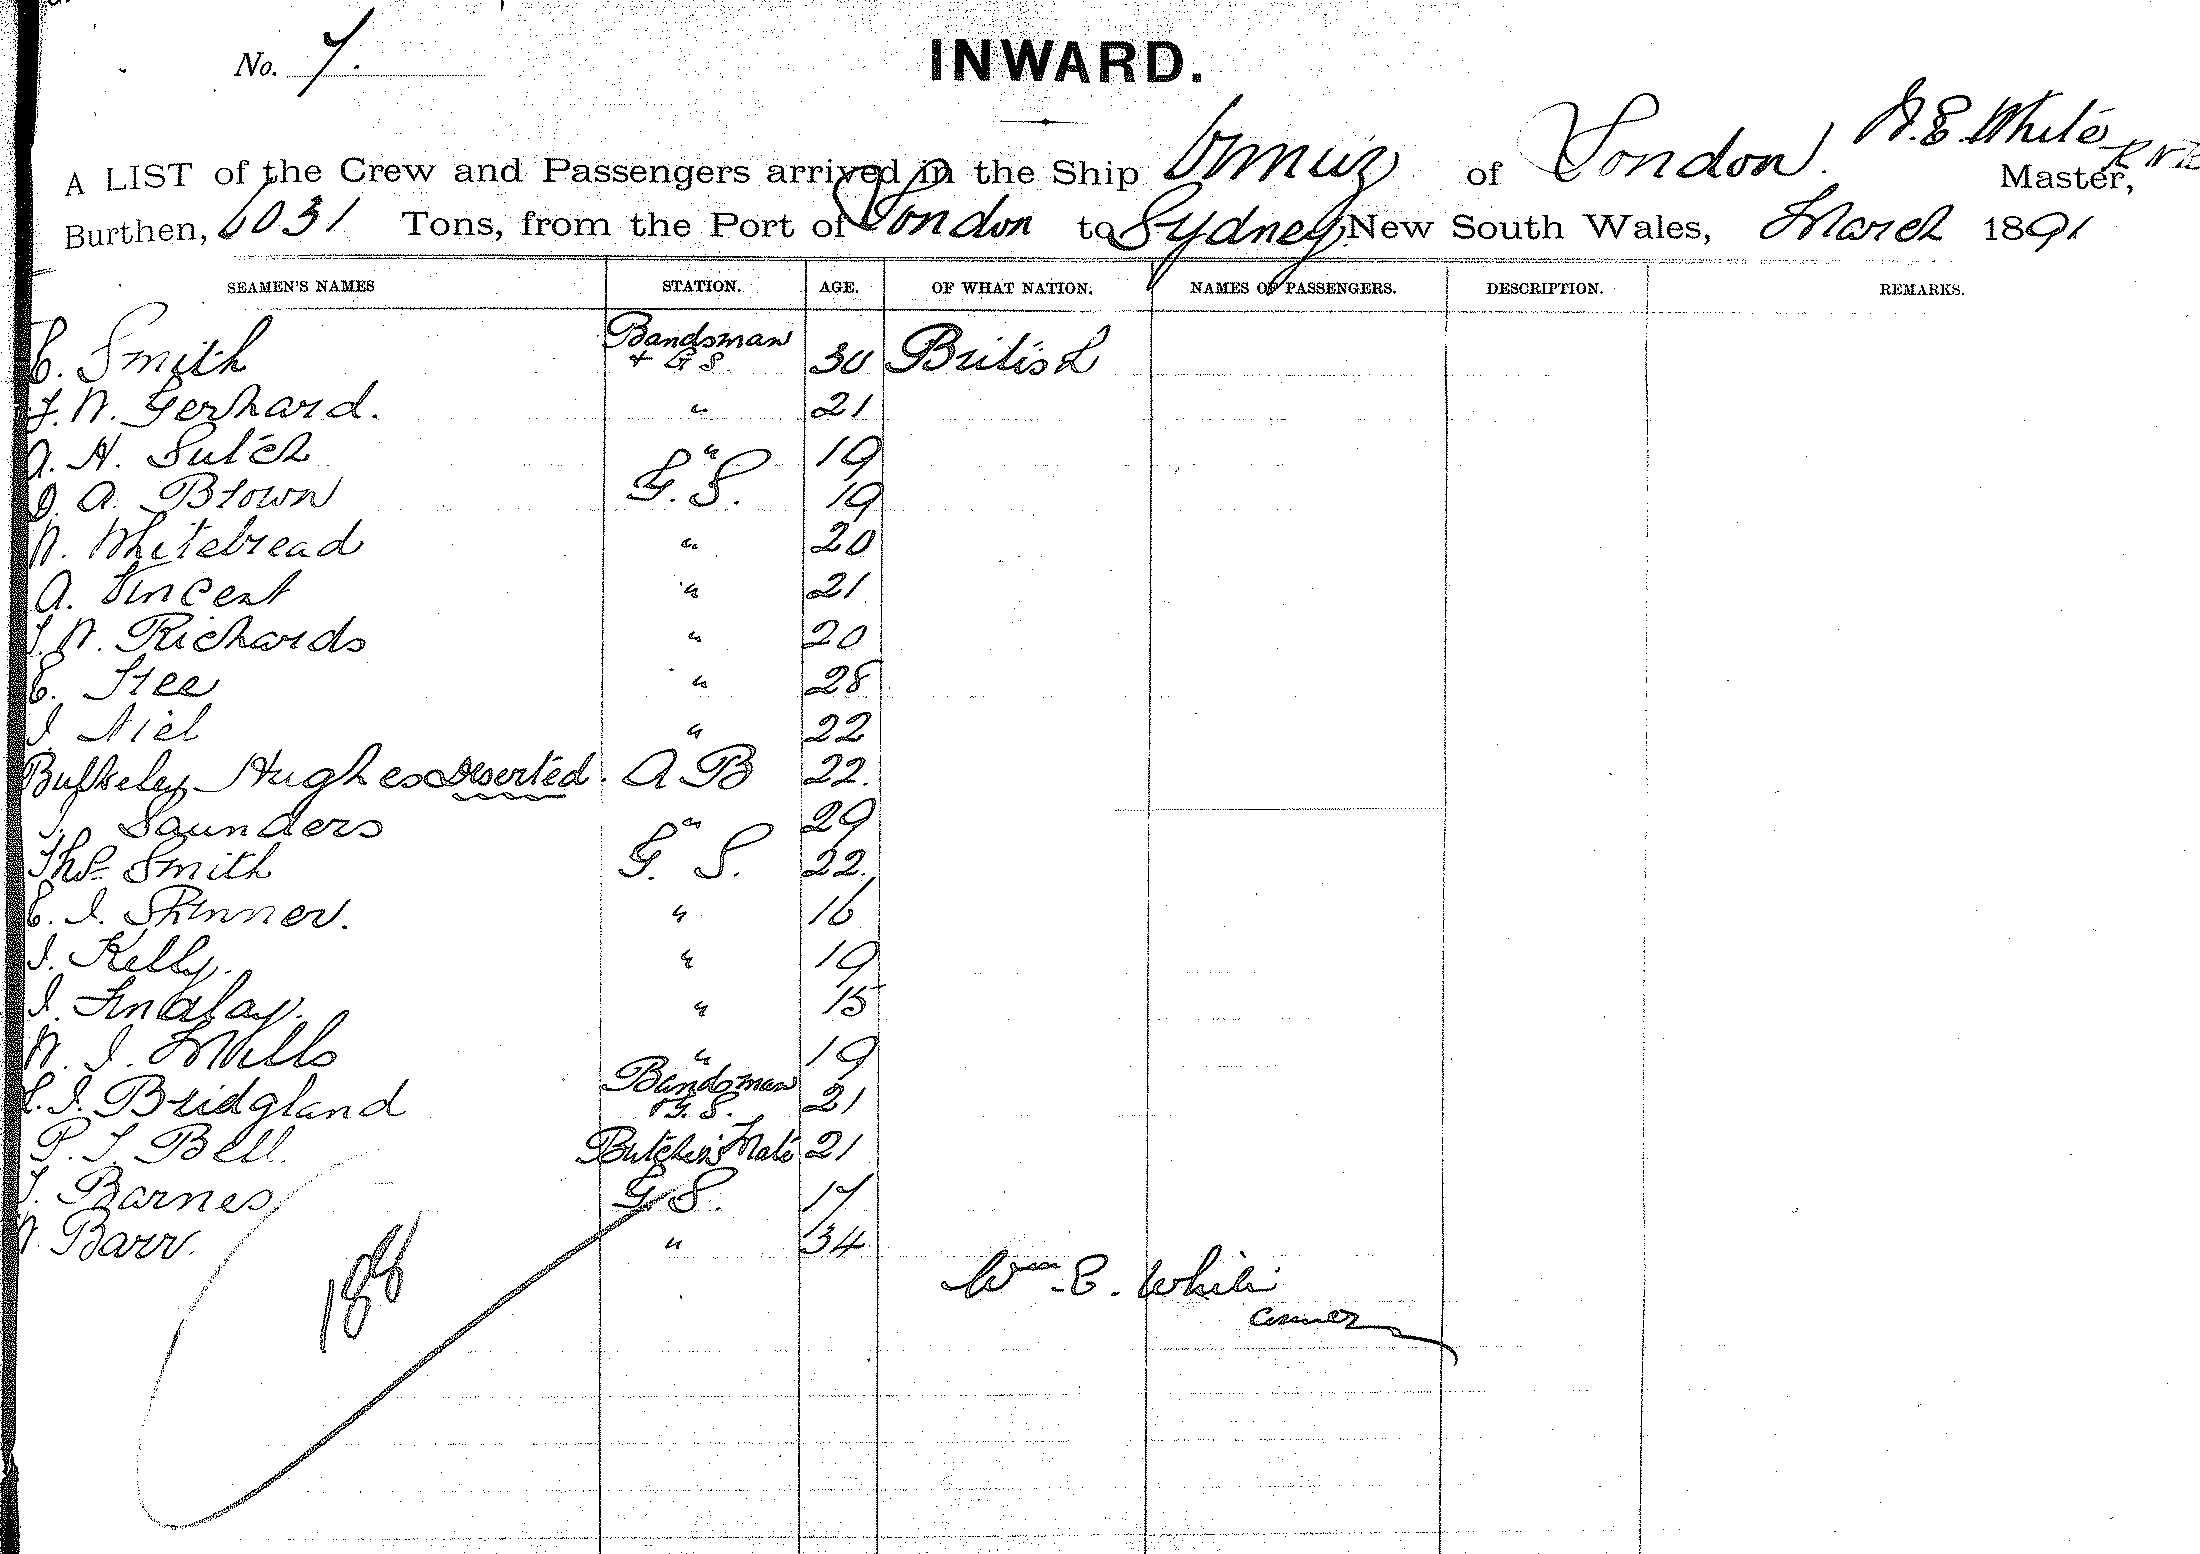 No. 7.
INWARD.
A LIST of the Crew and Passengers arrived in the Ship Ormuz of London. W. E. White R.N.R. Master,
Burthen, 6031 Tons, from the Port of London to Sydney, New South Wales, March 1891
SEAMEN'S NAMES STATION. AGE. OF WHAT NATION. NAMES OF PASSENGERS. DESCRIPTION. REMARKS.
E. Smith Bandsman + G S 30 British
F. W. Gerhard. " 21
A. H. Sutch " 19
A. Brown G. S. 19
W. Whitebread " 20
A. Vincent " 21
J. W. Richards " 20
E. " 28
J. Niel " 22
Bulkeley Hughes Deserted. A B 22.
J. Saunders " 29
Thos. Smith G. S. 22.
E. J. Skinner. " 16
J. Kelly. " 19
J. Findlay. " 15
W. J. Mills " 19
L. J. Bridgland Bandsman & G. S. 21
P. J. Bell. Butcher's Mate 21
J. Barnes G. S. 17
W. Barr. " 34
188
Wm. E. White
Comdr